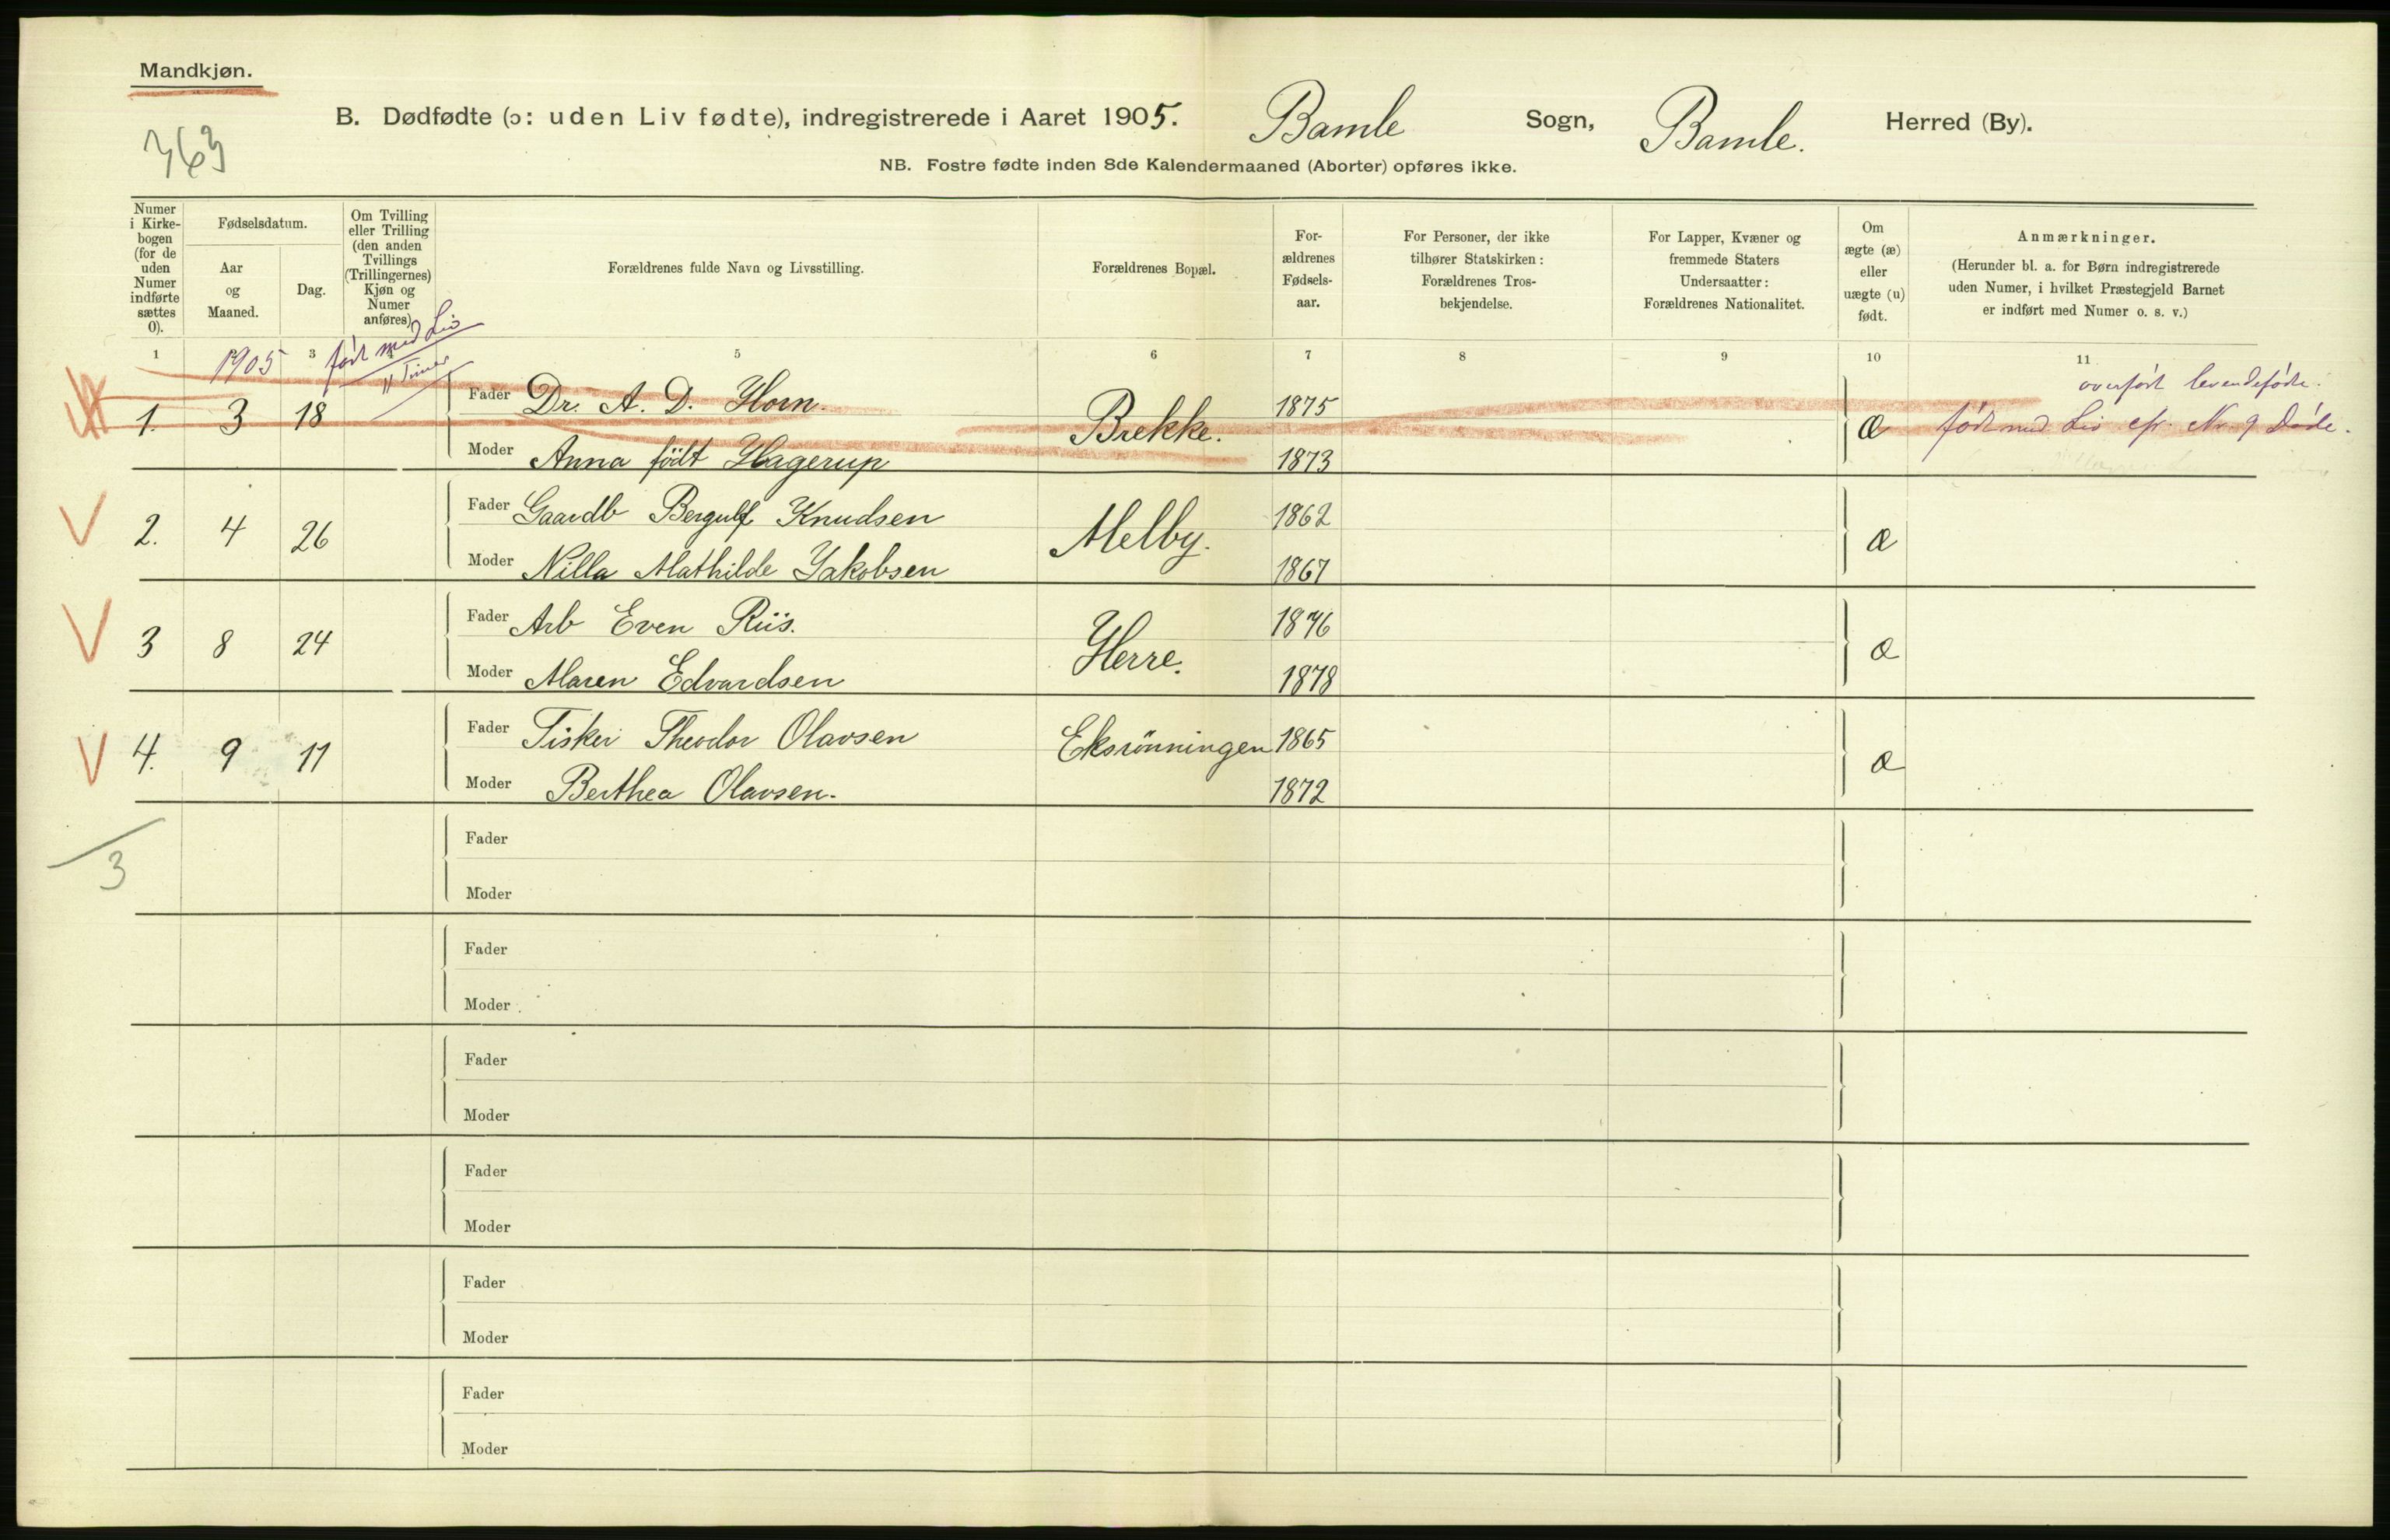 Mandkjøn.
363
B. Dødfødte (ɔ: uden Liv fødte), indregistrerede i Aaret 1905. Bamle Sogn, Bamle. Herred (By).
NB. Fostre fødte inden 8de Kalendermaaned (Aborter) opføres ikke.
Numer i Kirkebogen (for de uden Numer indførte sættes 0).
Fødselsdatum.
Aar og Maaned.
Dag.
Om Tvilling eller Trilling (den anden Tvillings (Trillingernes) Kjøn og Numer anføres).
Forældrenes fulde Navn og Livsstilling.
Forældrenes Bopæl.
For-ældrenes Fødsels-aar.
For Personer, der ikke tilhører Statskirken: Forældrenes Tros-bekjendelse.
For Lapper, Kvæner og fremmede Staters Undersaatter: Forældrenes Nationalitet.
Om ægte (æ) eller uægte (u) født.
Anmærkninger.
(Herunder bl. a. for Børn indregistrerede uden Numer, i hvilket Præstegjeld Barnet er indført med Numer o. s. v.)
1 3 5 6 7 8 9 10 11
1905 født med Liv
11 Timer
overført levendefødte.
1. 3 18 Fader Dr. A. D. Horn. Brekke. 1875 æ født med Liv cfr. Nr. 9 Døde.
Moder Anna født Hagerup 1873
2. 4 26 Fader Gaardb Bergulf Knudsen Melby. 1862 æ
Moder Nilla Mathilde Jakobsen 1867
3 8 24 Fader Arb Even Riis. Herre. 1876 æ
Moder Maren Edvardsen 1878
4. 9 11 Fader Fisker Theodor Olavsen Eksrönningen 1865 æ
Moder Berthea Olavsen. 1872
3
Fader
Moder
Fader
Moder
Fader
Moder
Fader
Moder
Fader
Moder
Fader
Moder